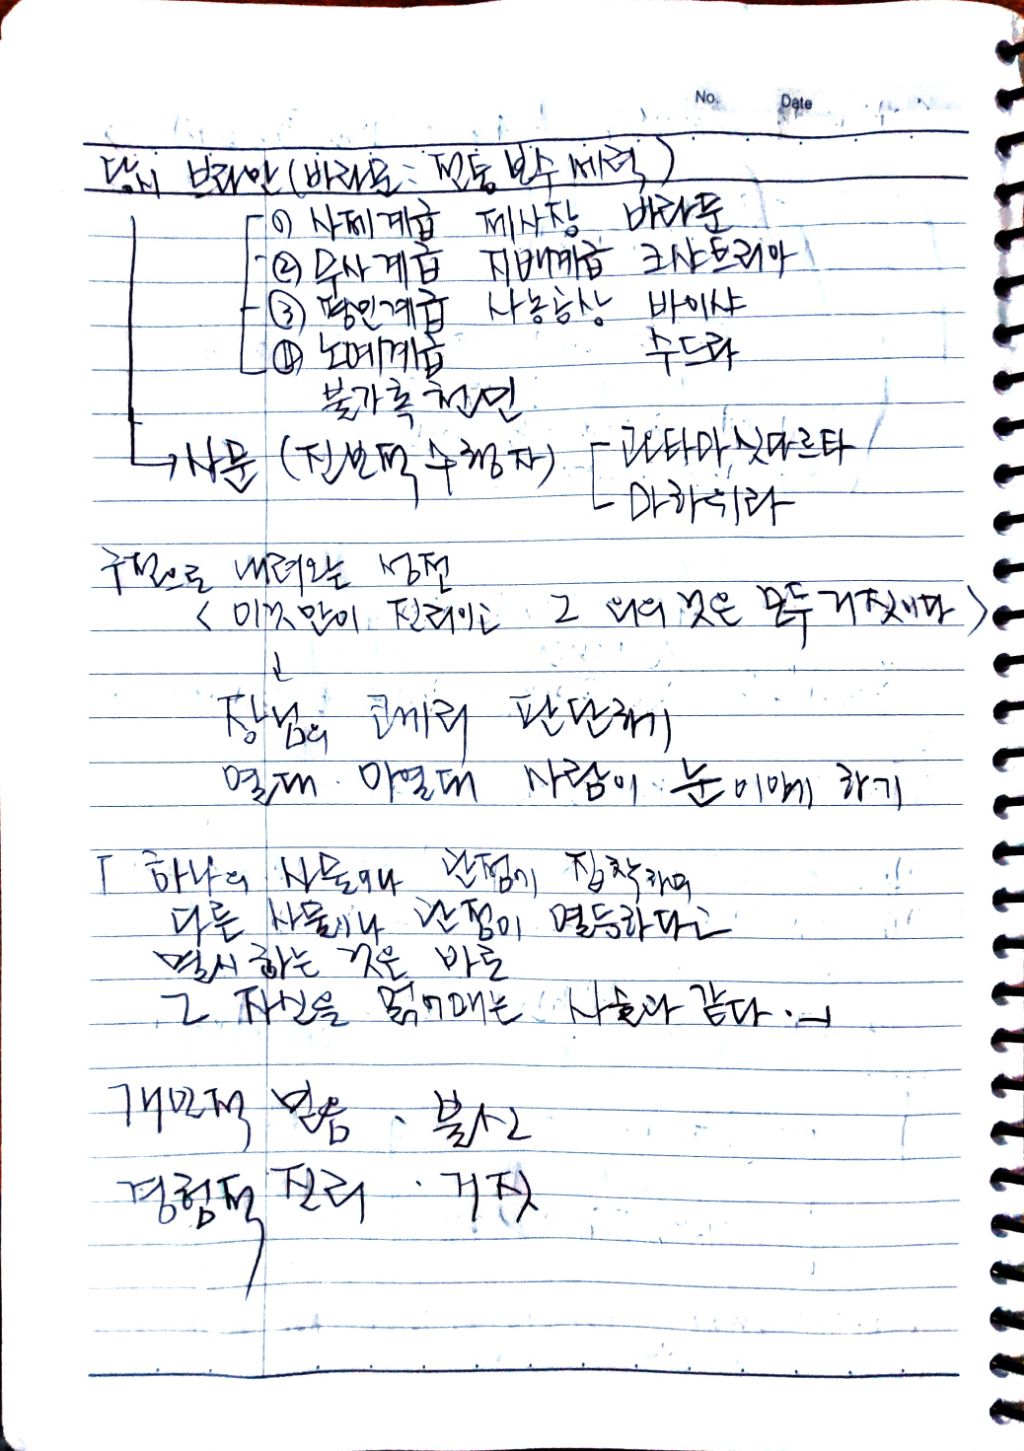 No.
Date
당시 브라만 (바라문 : 전통 보수 세력)
① 사제계급 제사장 바라문
② 무사계급 지배계급 크샤트리아
③ 평민계급 사농공상 바이샤
④ 노예계급 수드라
불가촉천민
→ 사문 (진보적 수행자) 고타마 싯다르타
마하위라
구전으로 내려오는 성전
< 이것만이 진리이고 그 외의 것은 모두 거짓이다 >
장님의 코끼리 판단하기
열대 아열대 사람이 눈 이야기 하기
「 하나의 사물이나 관점에 집착하여
다른 사물이나 관점이 열등하다고
멸시하는 것은 바로
그 자신을 얽어매는 사슬과 같다. 」
개인적 믿음 · 불신
경험적 진리 · 거짓